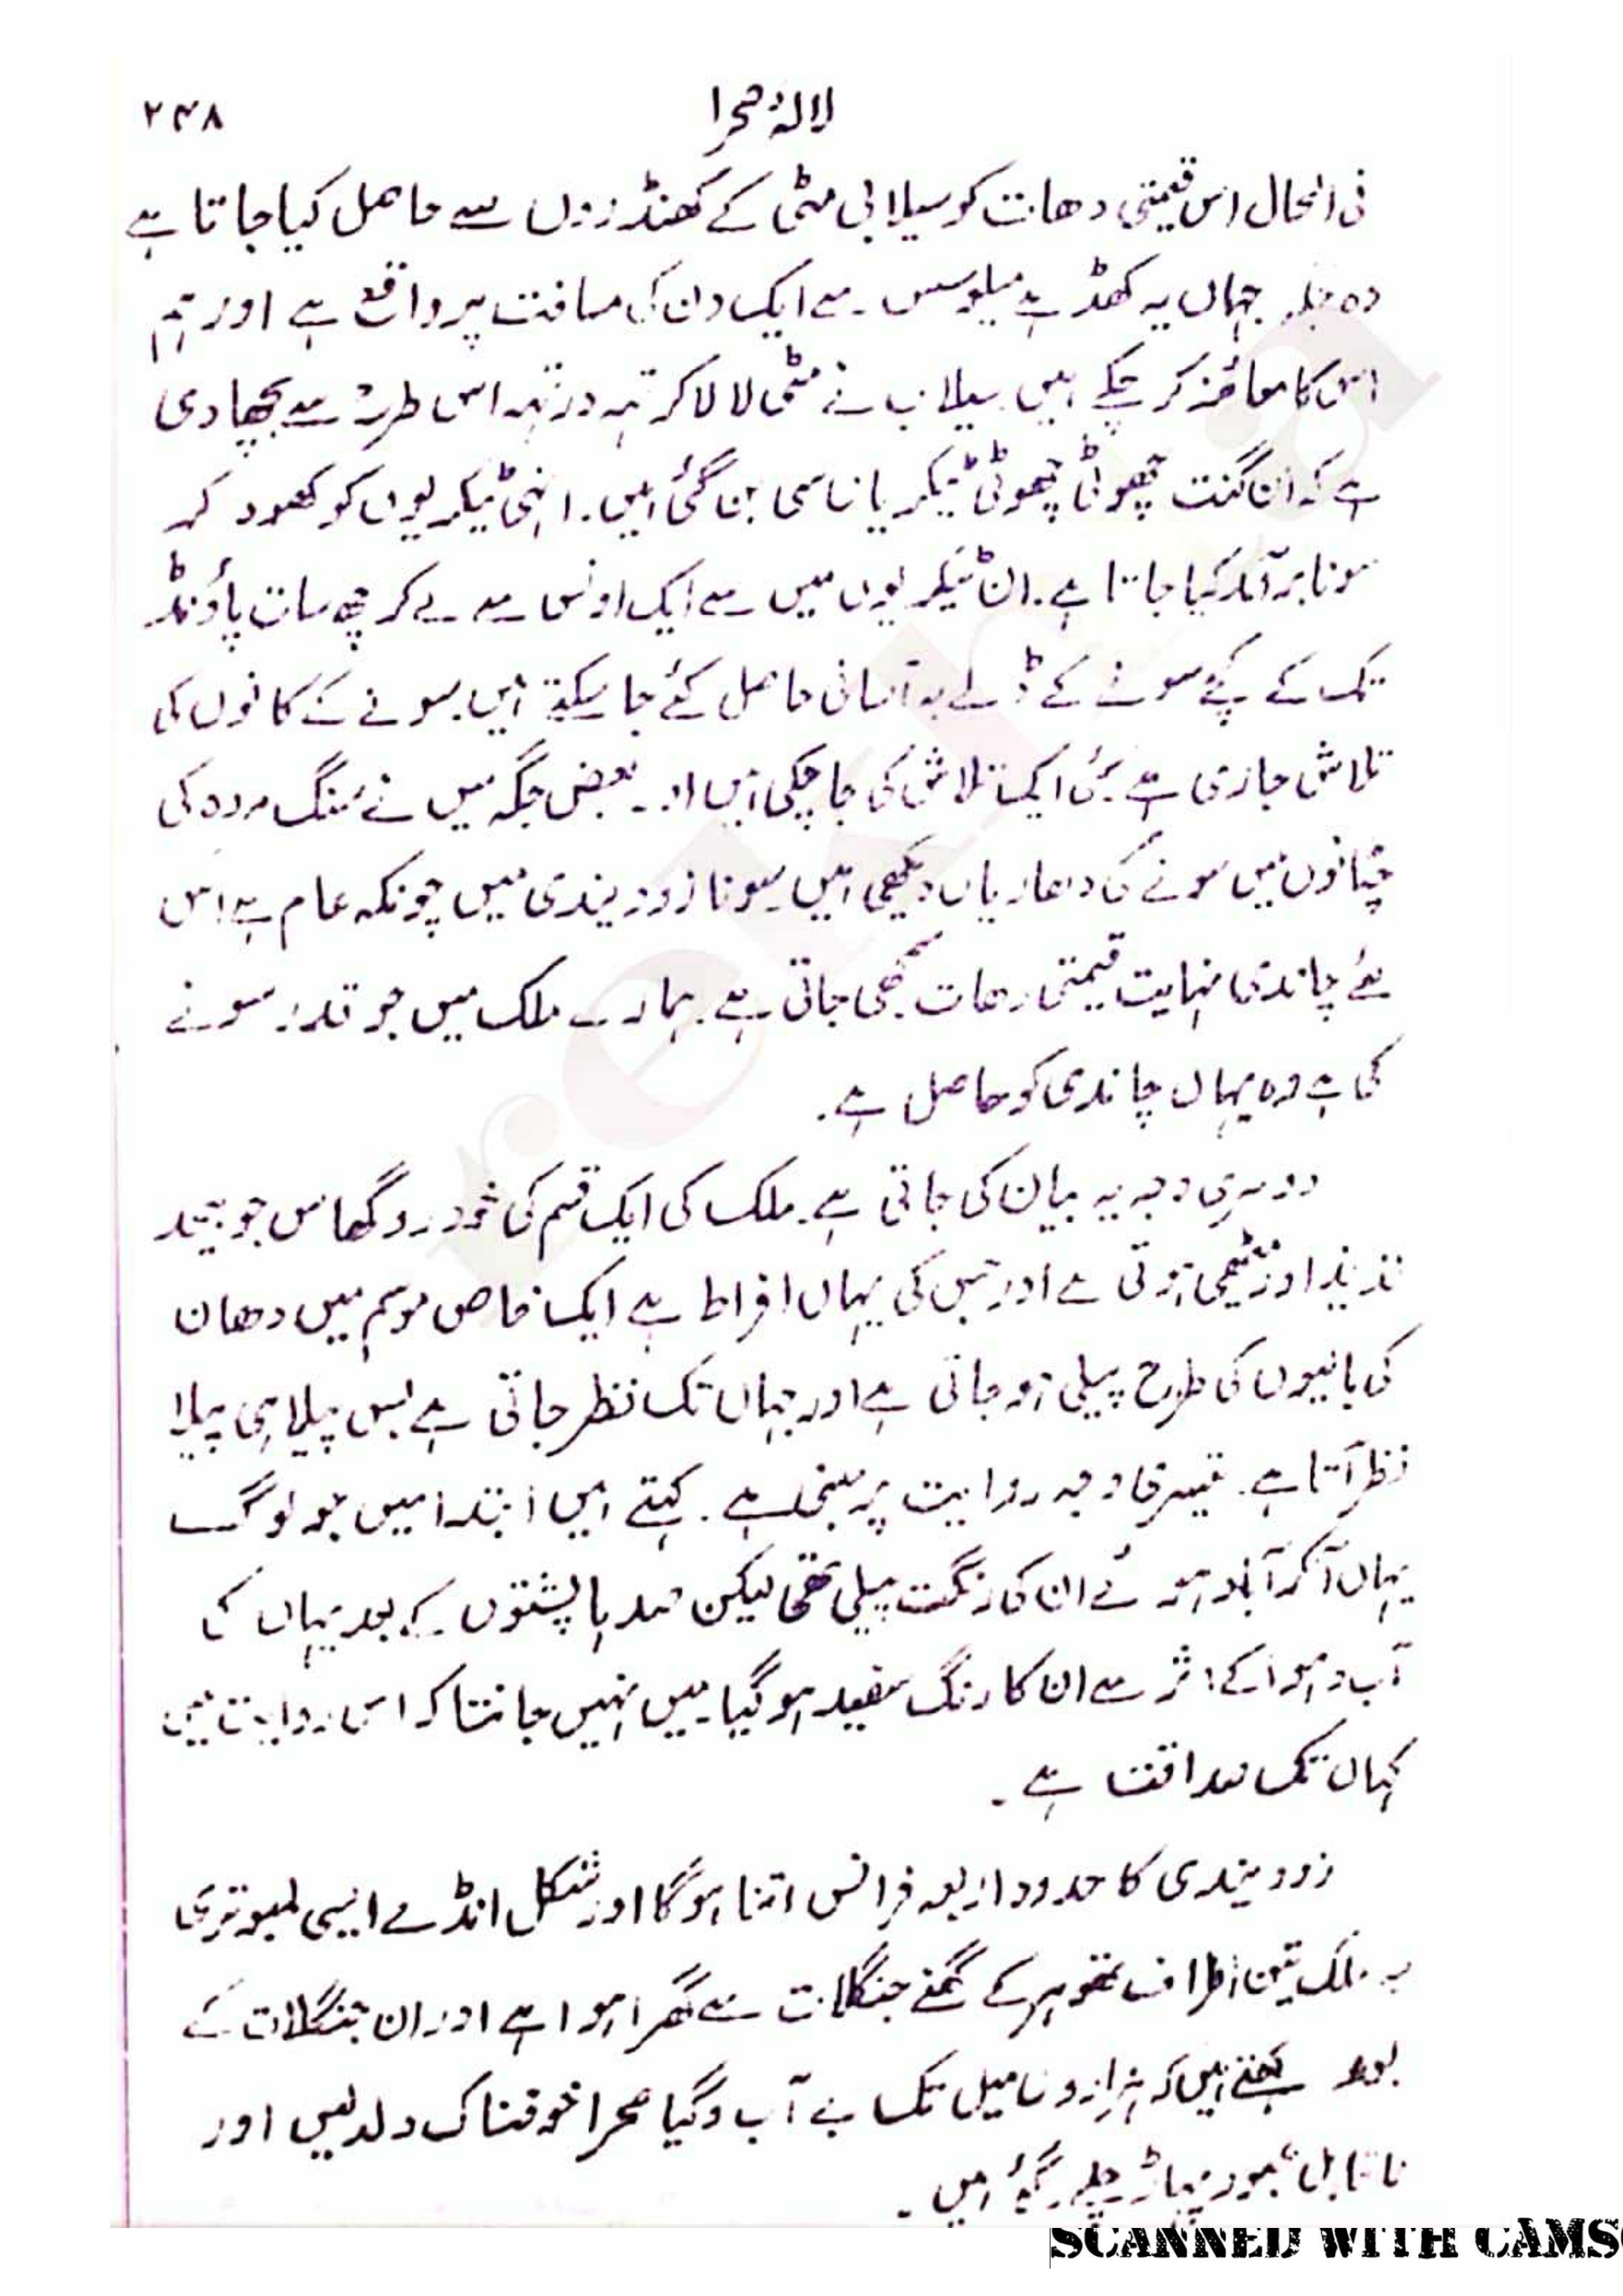 لالۂ صحرا
۲۴۸
فی الحال اس قیمتی دھات کو سیلابی مٹی کے کھنڈروں سے حاصل کیا جاتا ہے
وہ جگہ جہاں یہ کھڈ ہے میلوسس سے ایک دن کی مسافت پر واقع ہے اور ہم
اس کا معائنہ کر چکے ہیں۔ سیلاب نے مٹی لا لا کر تہہ در تہہ اس طرح سے بچھا دی
ہے کہ ان گنت چھوٹی چھوٹی ٹیکریاں سی بن گئی ہیں۔ انہی ٹیکریوں کو کھود کر
سونا برآمد کیا جاتا ہے۔ ان ٹیکریوں میں سے ایک اونس سے لے کر چھ سات پاؤنڈ
تک کے پکے سونے کے ڈلے بہ آسانی حاصل کئے جا سکتے ہیں۔ سونے کے کانوں کی
تلاش جاری ہے۔ کئی ایک تلاش کی جا چکی ہیں اور بعض جگہ میں نے سنگ مردہ کی
چٹانوں میں سونے کی دھاریاں دیکھی ہیں۔ سونا زوویندی میں چونکہ عام ہے اس
لئے چاندی نہایت قیمتی دھات سمجھی جاتی ہے۔ ہمارے ملک میں جو قدر سونے
کی ہے وہ یہاں چاندی کو حاصل ہے۔
دوسری وجہ یہ بیان کی جاتی ہے۔ ملک کی ایک قسم کی خودرو گھاس جو بیحد
لذیذ اور میٹھی ہوتی ہے اور جس کی یہاں افراط ہے ایک خاص موسم میں دھان
کی بالیوں کی طرح پیلی ہو جاتی ہے اور جہاں تک نظر جاتی ہے بس پیلا ہی پیلا
نظر آتا ہے۔ تیسری وجہ روایت پر مبنی ہے۔ کہتے ہیں ابتدا میں جو لوگ
یہاں آ کر آباد ہوئے ان کا رنگت پیلی تھی لیکن صدہا پشتوں کے بعد یہاں کی
آب و ہوا کے اثر سے ان کا رنگ سفید ہو گیا۔ میں نہیں جانتا کہ اس روایت میں
کہاں تک صداقت ہے۔
زوویندی کا حدود اربعہ فرانس اتنا ہوگا اور شکل انڈے ایسی لمبوتری
یہ ملک تین اطراف تھوہر کے گھنے جنگلات سے گھرا ہوا ہے اور ان جنگلات کے
بعد کہتے ہیں کہ ہزاروں میل تک بے آب و گیا صحرا خوفناک دلدلیں اور
ناقابل عبور پہاڑ چلے گئے ہیں۔
SCANNED WITH CAMS